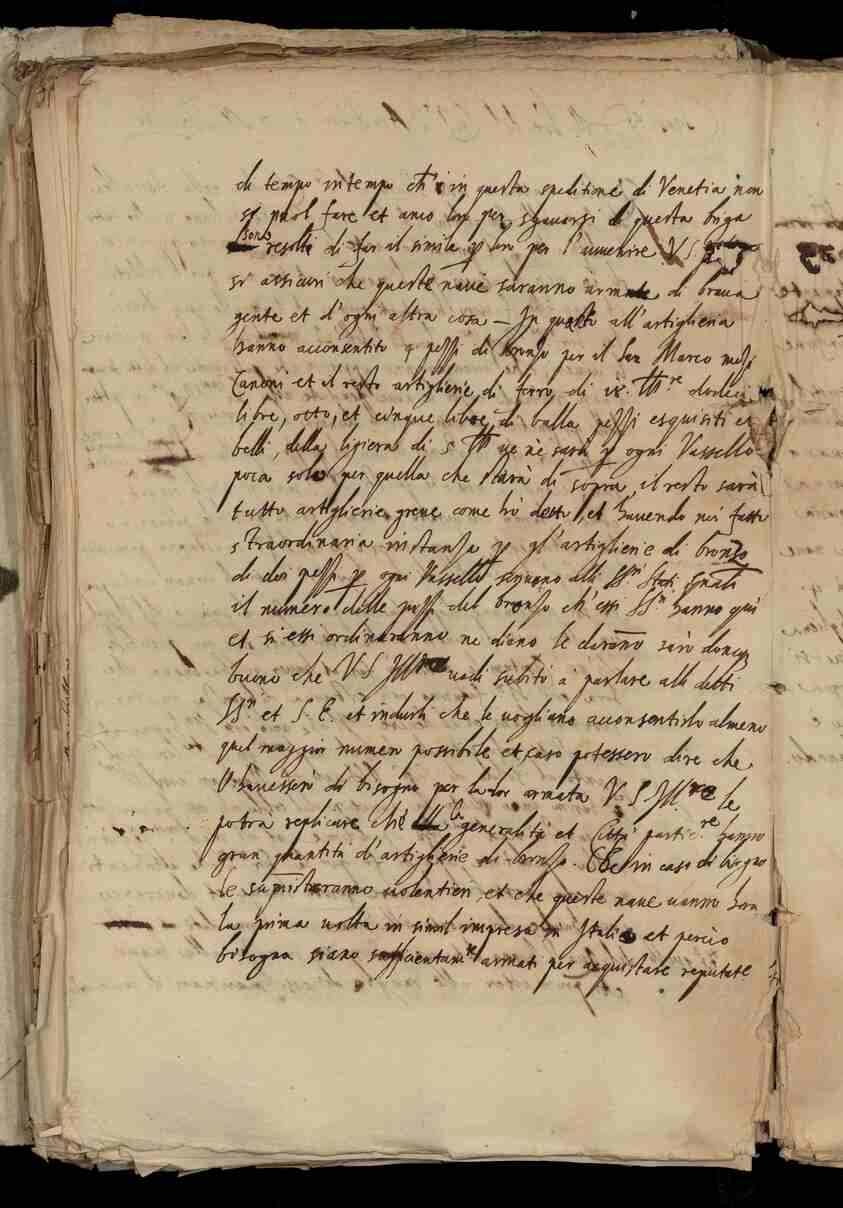 di tempo in tempo ch'è in questa speditione di Venetia non
si puol fare et anco lor per sgravarsi di questa briga
sono resolti di far il simile per l'avvenire V S
si assicuri che queste nave saranno armate di brava
gente et d'ogni altra cosa – In quanto all'artiglieria
hanno acconsentito 4 pessi di bronso per il San Marco mesi
Canoni et il resto artiglierie di ferro di dodeci
libre, octo, et cinque libre di balla pessi esquisiti et
belli, della ligiera di 5 ve nè sarà per ogni Vassello
poca solo per quella che stara di sopra, il resto sarà
tutto artiglierie greve come hò detto, et havendo noi fatto
straordinaria instansa per gl'artiglierie di bronzo
di doi pessi per ogni Vassello scrivono alli SSri Stati
il numero delle pessi del bronso ch'essi SSri hanno quì
et si essi ordineranno ne diano le daranno sarà doncq
buono che V S Illre vadi subito à parlare alli detti
SSri et S. E. et indurli che le vogliano acconsentirlo almeno
quel maggior numero possibile et caso potessero dire che
l'havessero di bisogno per la lor armata V. S. Illre le
potrà replicare ché la generalità et Città partic.re hanno
gran quantità d'artiglierie di bronso. Che in caso di bisogno
le sumistraranno volentieri et che queste nave vanno hora
la prima volta in simil impresa in Italia et perciò
bisogna siano sufficientam.te armati per acquistare reputat.e